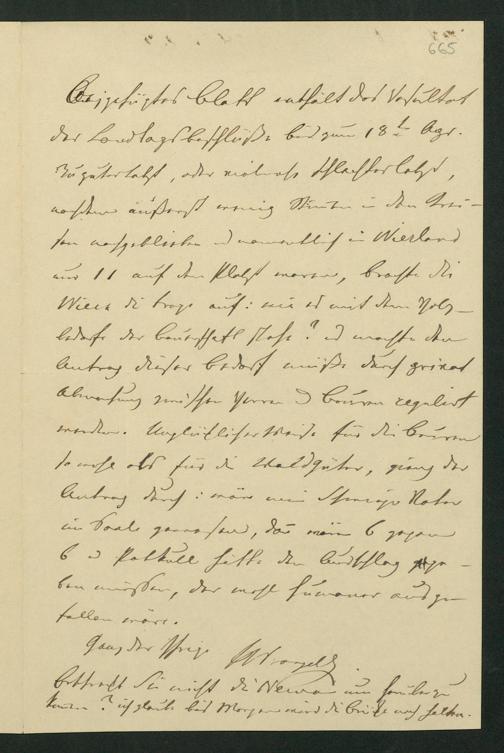 665
Beigefügtes Blatt enthält das Resultat
der Landtagsbeschlüße bis zum 18t Apr.
Zu guter letzt, oder vielmehr schlechter letzt,
nachdem äußerst wenig in den
ten nachgeblieben u namentlich in Wierland
nur 11 auf dem Platze waren, brachte die
Wieck die Frage auf: wie es mit dem Holz-
bedarf der Bauerschaft stehe? u machte den
Antrag dieser Bedarf müße durch privat
Abmachung zwischen Herren u Bauern regulirt
werden. Unglücklicherweise für die Bauern
sowohl als für die Waldgüter, ging der
Antrag durch: wäre mein Schwieger Vater
im Saale gewesen, so wären 6 gegen
6 u Patkull hätte den Ausschlag ge-
ben müssen, der wohl humaner ausge-
fallen wäre.
Ganz der Ihrige
Betracht Sie nicht die Newa um
kommen? ich glaube bis Morgen wird die Brücke noch halten.